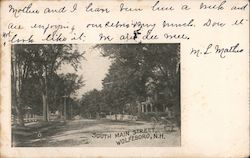 Mother and I have been here a week and
are enjoying ourselves very much. Does it
look like it. We are all well.
M. L. Mathes
SOUTH MAIN STREET,
WOLFEBORO, N.H.